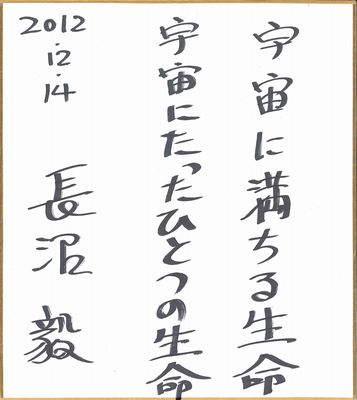 宇宙に満ちる生命
宇宙にたったひとつの生命
2012
.12
.14
長沼毅